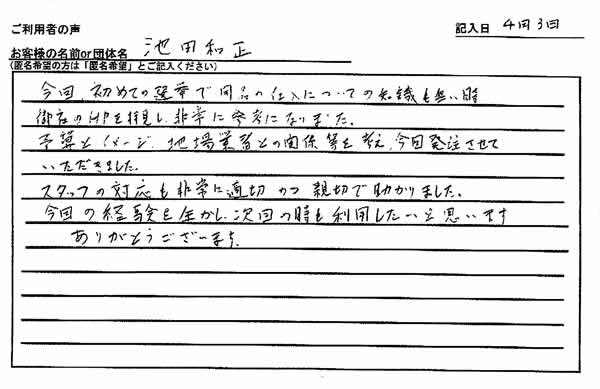 ご利用者の声
記入日 4月3日
お客様の名前or団体名 池田和正
(匿名希望の方は「匿名希望」とご記入ください)
今回、初めての選挙で商品の仕入についての知識も無い時
御店のHPを拝見し、非常に参考になりました。
予算とイメージ、地場業者との関係等を考え、今回発注させて
いただきました。
スタッフの対応も非常に適切かつ親切で助かりました。
今回の経験を生かし、次回の時も利用したいと思います
ありがとうございます。